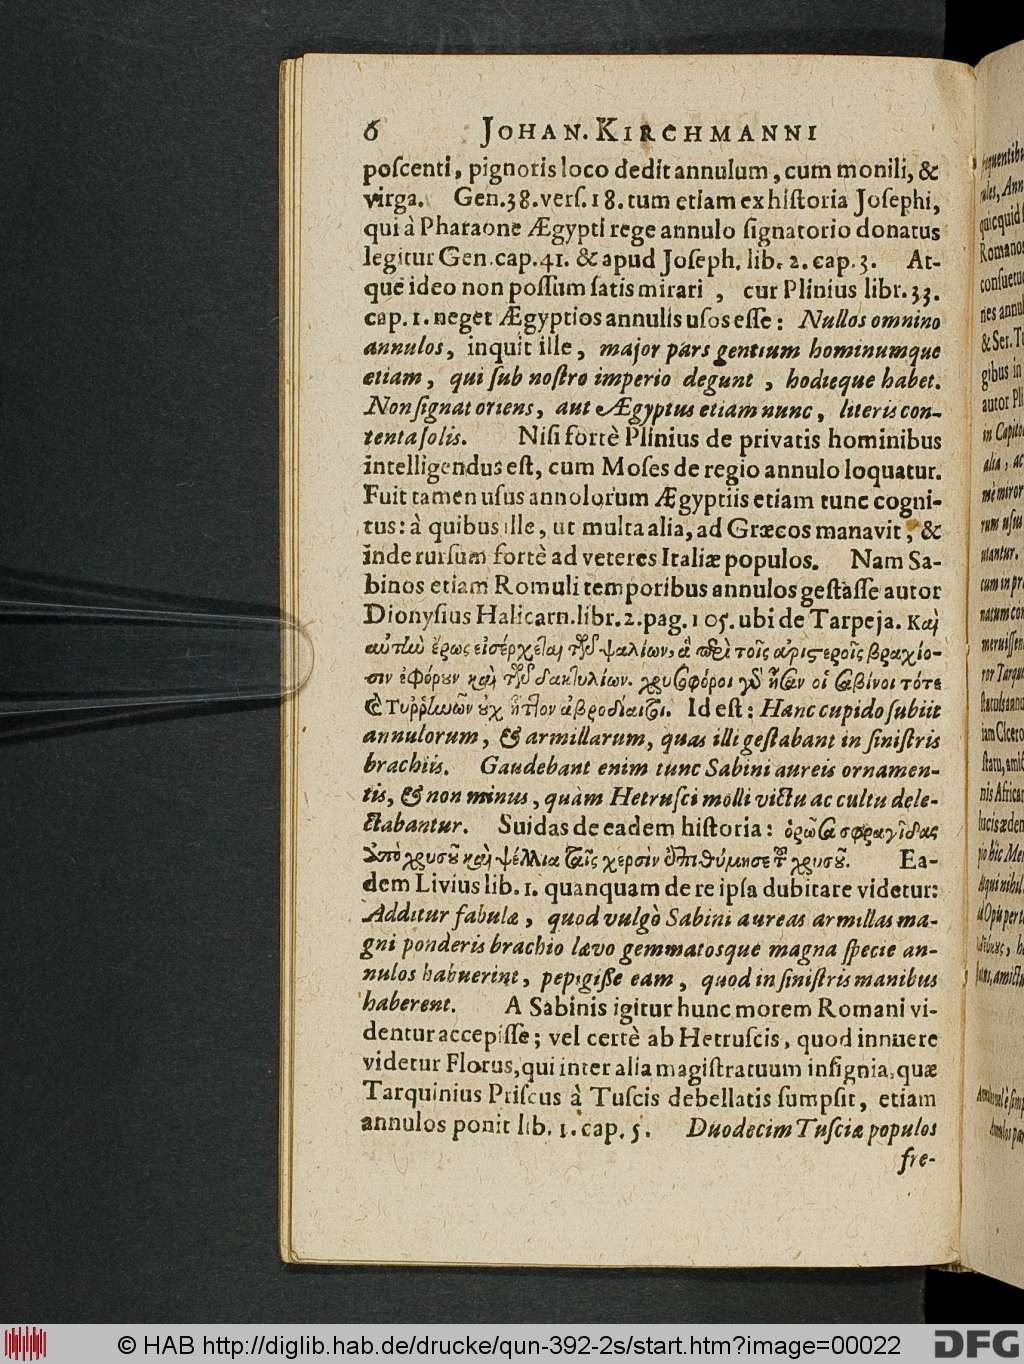 6 JOHAN. KIRCHMANNI
poſcenti, pignoris loco dedit annulum, cum monili, &
virga. Gen. 38. verſ. 18. tum etiam ex hiſtoria Joſephi,
qui à Pharaone Ægypti rege annulo ſignatorio donatus
legitur Gen. cap. 41. & apud Joſeph. lib. 2. cap. 3. At-
que ideo non poſſum ſatis mirari, cur Plinius libr. 33.
cap. 1. neget Ægyptios annulis uſos eſſe: Nullos omnino
annulos, inquit ille, major pars gentium hominumque
etiam, qui ſub noſtro imperio degunt, hodieque habet.
Non ſignat oriens, aut Ægyptus etiam nunc, literis con-
tenta ſolis. Niſi fortè Plinius de privatis hominibus
intelligendus eſt, cum Moſes de regio annulo loquatur.
Fuit tamen uſus annolorum Ægyptiis etiam tunc cogni-
tus: à quibus ille, ut multa alia, ad Græcos manavit, &
inde rurſum fortè ad veteres Italiæ populos. Nam Sa-
binos etiam Romuli temporibus annulos geſtaſſe autor
Dionyſius Halicarn. libr. 2. pag. 105. ubi de Tarpeja. Καὶ
αὐτὴν ἔρως εἰσέρχεται τῶν ψαλίων, ἃ περὶ τοῖς ἀριστεροῖς βραχίο-
σιν ἐφόρουν καὶ τῶν δακτυλίων. χρυσοφόροι γὰρ ἦσαν οἱ Σαβίνοι τότε
καὶ Τυρρηνῶν οὐχ ἧττον ἁβροδίαιτοι. Id eſt: Hanc cupido ſubiit
annulorum, & armillarum, quas illi geſtabant in ſiniſtris
brachiis. Gaudebant enim tunc Sabini aureis ornamen-
tis, & non minus, quàm Hetruſci molli victu ac cultu dele-
ctabantur. Suidas de eadem hiſtoria: ὁρῶσα σφραγῖδας
ἀπὸ χρυσοῦ καὶ ψέλλια ταῖς χερσὶν ἐπιθύμησε τοῦ χρυσοῦ. Ea-
dem Livius lib. 1. quanquam de re ipſa dubitare videtur:
Additur fabulæ, quod vulgò Sabini aureas armillas ma-
gni ponderis brachio lævo gemmatosque magna ſpecie an-
nulos habuerint, pepigiſſe eam, quod in ſiniſtris manibus
haberent. A Sabinis igitur hunc morem Romani vi-
dentur accepiſſe; vel certè ab Hetruſcis, quod innuere
videtur Florus, qui inter alia magiſtratuum inſignia, quæ
Tarquinius Priſcus à Tuſcis debellatis ſumpſit, etiam
annulos ponit lib. 1. cap. 5. Duodecim Tuſciæ populos
fre-
© HAB http://diglib.hab.de/drucke/qun-392-2s/start.htm?image=00022
DFG